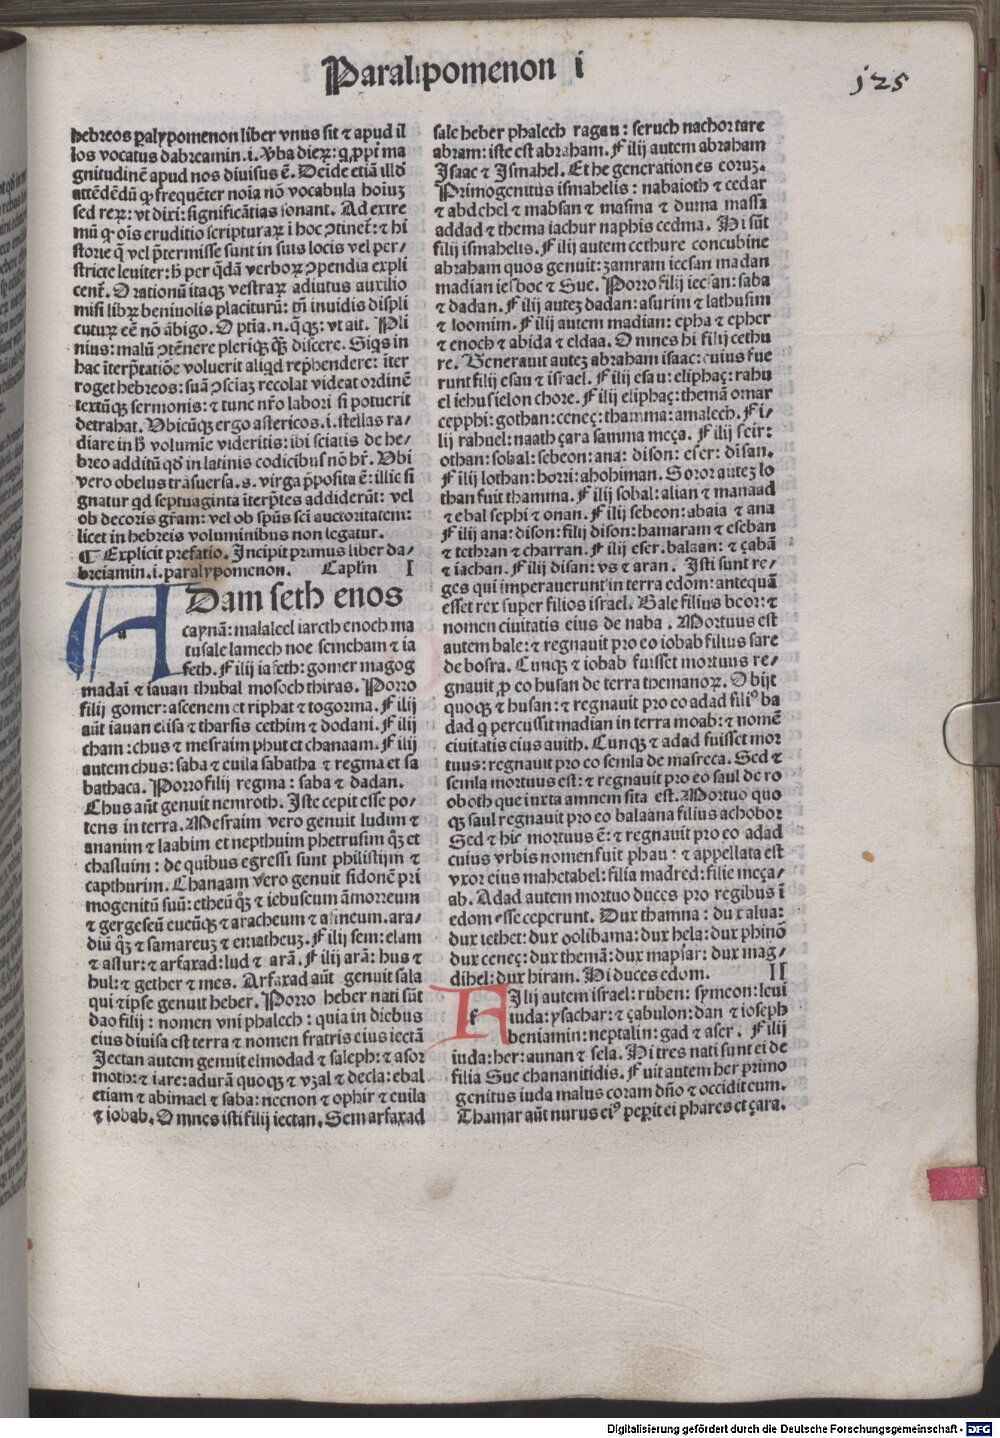 Paralipomenon i
125
hebreos paralypomenon liber vnus sit ⁊ apud il
los vocatus dabreiamin. i. v̾ba dieꝝ: q̢ ꝓpt̾ ma
gnitudinē apud nos diuisus ē. Deīde etiā illd̾
attēdēdū ꝙ frequēter noīa nō vocabula hoīuʒ
sed reꝝ: vt dixi: significātias sonant. Ad extre
mū ꝙ oīs eruditio scripturaꝝ i hoc ↄtinet̃: ⁊ hi
storie q̄ vel p̄termisse sunt in suis locis vel per/
stricte leuiter: h̾ per q̄dā verboꝝ ↄpendia expli
cent̃. Orationū itaqʒ vestraꝝ adiutus auxilio
misi libꝝ beniuolis placiturū: tn̄ inuidis displi
cituꝝ eē nō ābigo. Optīa. n. q̄qʒ: vt ait. Pli
nius: malū ↄtēnere pleriqʒ q̄ʒ discere. Siqs in
hac īterp̄tatiōe voluerit aliqd rep̄hendere: īter
roget hebreos: suā ↄsciaʒ recolat videat ordinē
textūqʒ sermonis: ⁊ tunc nr̄o labori si potuerit
detrahat. Vbicūqʒ ergo astericos. i. stellas ra/
diare in h̾ volumīe videritis: ibi sciatis de he/
breo additū qd̾ in latinis codicibus nō hr̃. Vbi
vero obelus trāsuersa. s. virga p̄posita ē: illic si
gnatur qd septuaginta īterp̄tes addiderūt: vel
ob decoris gr̄am: vel ob sp̄us sc̄i auctoritatem:
licet in hebreis voluminibus non legatur.
¶ Explicit prefatio. Incipit primus liber da/
breiamin. i. paralypomenon. Caplm I
ADam seth enos
caynā: malaleel iareth enoch ma
tusale lamech noe semcham ⁊ ia
feth. Filij iafeth: gomer magog
madai ⁊ iauan thubal mosoch thiras. Porro
filij gomer: ascenem et riphat ⁊ togorma. Filij
aūt iauan elisa ⁊ tharsis cethim ⁊ dodani. Filij
cham: chus ⁊ mesraim phut et chanaam. Filij
autem chus: saba ⁊ euila sabatha ⁊ regma et sa
bathaca. Porro filij regma: saba ⁊ dadan.
Chus aūt genuit nemroth. Iste cepit esse po/
tens in terra. Mesraim vero genuit ludim ⁊
ananim ⁊ laabim et nepthuim phetrusim qʒ et
chasluim: de quibus egressi sunt philistijm ⁊
capthurim. Chanaam vero genuit sidonē pri
mogenitū suū: etheūqʒ ⁊ iebuseum āmorreum
⁊ gergeseū eueūqʒ ⁊ aracheum ⁊ asineum. ara/
diū qʒ ⁊ samareuʒ ⁊ ematheuʒ. Filij sem: elam
⁊ assur: ⁊ arfaxad: lud ⁊ arā. Filij arā: hus ⁊
hul: ⁊ gether ⁊ mes. Arfaxad aūt genuit sala
qui ⁊ ipse genuit heber. Porro heber nati sūt
dao filij: nomen vni phalech: quia in diebus
eius diuisa est terra ⁊ nomen fratris eius iectā
Iectan autem genuit elmodad ⁊ saleph: ⁊ asor
moth: ⁊ iare: adurā quoqʒ ⁊ vʒal ⁊ decla: ebal
etiam ⁊ abimael ⁊ saba: necnon ⁊ ophir ⁊ euila
⁊ iobab. Omnes isti filij iectan. Sem arfaxad
sale heber phalech ragau: seruch nachor tare
abram: iste est abraham. Filij autem abraham
Isaac ⁊ Ismahel. Et he generationes coruʒ.
Primogenitus ismahelis: nabaioth ⁊ cedar
⁊ abdehel ⁊ mabsan ⁊ masma ⁊ duma massa
addad ⁊ thema iachur naphis cedma. Hi sūt
filij ismahelis. Filij autem cethure concubine
abraham quos genuit: ʒamram iecsan madan
madian iesboc ⁊ Sue. Porro filij iecsan: saba
⁊ dadan. Filij auteʒ dadan: asurim ⁊ lathusim
⁊ loomim. Filij autem madian: epha ⁊ epher
⁊ enoch ⁊ abida ⁊ eldaa. Omnes hi filij cethu
re. Generauit auteʒ abraham isaac: cuius fue
runt filij esau ⁊ israel. Filij esau: eliphaç: rahu
el iehus ielon chore. Filij eliphaç: themā omar
cepphi: gothan: ceneç: thamma: amalech. Fi/
lij rahuel: naath çara samma meça. Filij seir:
othan: sobal: sebeon: ana: dison: eser: disan.
Filij lothan: horri: ahohiman. Soror auteʒ lo
than fuit thamma. Filij sobal: alian ⁊ manaad
⁊ ebal sephi ⁊ onan. Filij sebeon: abaia ⁊ ana
Filij ana: dison: filij dison: hamaram ⁊ eseban
⁊ iethran ⁊ charran. Filij eser. balaan: ⁊ çabā
⁊ iachan. Filij disan: vs ⁊ aran. Isti sunt re/
ges qui imperauerunt in terra edom: antequā
esset rex super filios israel. Bale filius beor: ⁊
nomen ciuitatis eius de naba. Mortuus est
autem bale: ⁊ regnauit pro eo iobab filius sare
de bosra. Cunqʒ ⁊ iobab fuisset mortuus re/
gnauit ꝓ eo husan de terra themanoꝝ. Obijt
quoqʒ ⁊ husan: ⁊ regnauit pro eo adad fili⁹ ba
dad q̄ percussit madian in terra moab: ⁊ nomē
ciuitatis eius auith. Cunqʒ ⁊ adad fuisset mor
tuus: regnauit pro eo semla de masreca. Sed ⁊
semla mortuus est: ⁊ regnauit pro eo saul de ro
oboth que iuxta amnem sita est. Mortuo quo
qʒ saul regnauit pro eo balaana filius achobor
Sed ⁊ hic mortuus ē: ⁊ regnauit pro eo adad
cuius vrbis nomen fuit phau: ⁊ appellata est
vxor eius mahetabel: filia madred: filie meça/
ab. Adad autem mortuo duces pro regibus ī
edom esse ceperunt. Dux thamna: dux alua:
dux iethet: dux oolibama: dux hela: dux phinō
dux ceneç: dux themā: dux mapsar: dux mag/
dihel: dux hiram. Hi duces edom. II
FIlij autem israel: ruben: symeon: leui
iuda: ysachar: ⁊ çabulon: dan ⁊ ioseph
beniamin: neptalin: gad ⁊ aser. Filij
iuda: her: aunan ⁊ sela. Hi tres nati sunt ei de
filia Sue chananitidis. Fuit autem her primo
genitus iuda malus coram dn̄o ⁊ occidit eum.
Thamar aūt nurus ei⁹ peperit ei phares et çara.
Digitalisierung gefördert durch die Deutsche Forschungsgemeinschaft - DFG